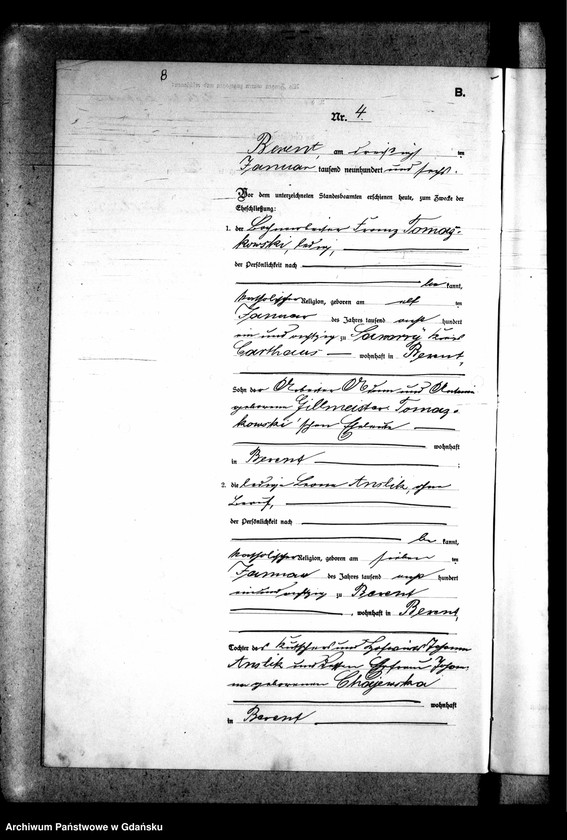 8
B.
Nr. 4.
Berent, am dreißigsten
Januar tausend neunhundert und sechs.
Vor dem unterzeichneten Standesbeamten erschienen heute, zum Zwecke der
Eheschließung:
1. der Franz Tomaz-
kowski, ledig,
der Persönlichkeit nach
be kannt,
katholischer Religion, geboren am elf ten
Januar des Jahres tausend acht hundert
ein und achtzig zu Kreis
Carthaus wohnhaft in Berent,
Sohn der Arbeiter Adam und
geborenen Gillmeister Tomaz-
kowski'schen Eheleute
wohnhaft
in Berent ;
2. die ledige Anslik, ohne
Beruf,
der Persönlichkeit nach
be kannt,
katholischer Religion, geboren am sieben ten
Januar des Jahres tausend acht hundert
einundachtzig zu Berent
, wohnhaft in Berent,
Tochter des Kutschers und Johann
Anslik und dessen Ehefrau Johan-
na geborenen
wohnhaft
in Berent
Archiwum Państwowe w Gdańsku